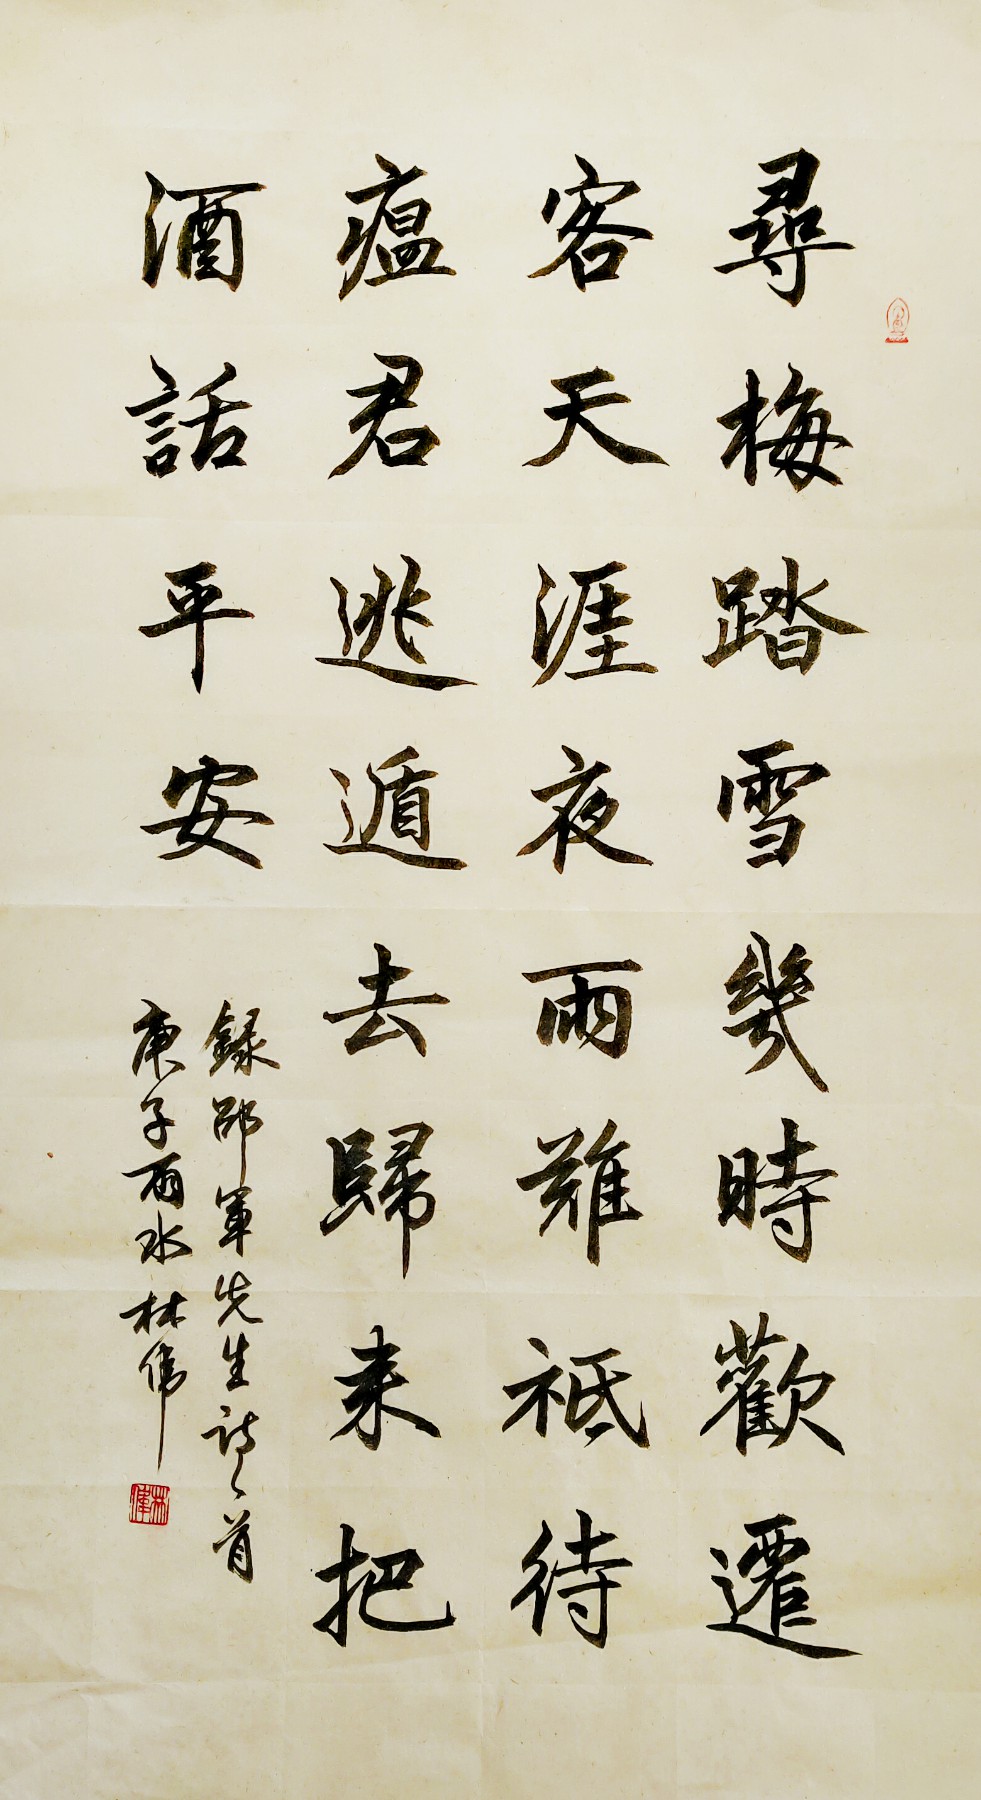 尋梅踏雪幾時歡遷
客天涯夜雨難祗待
瘟君逃遁去歸来把
酒話平安
録邵軍先生詩一首
庚子雨水林偉
林偉